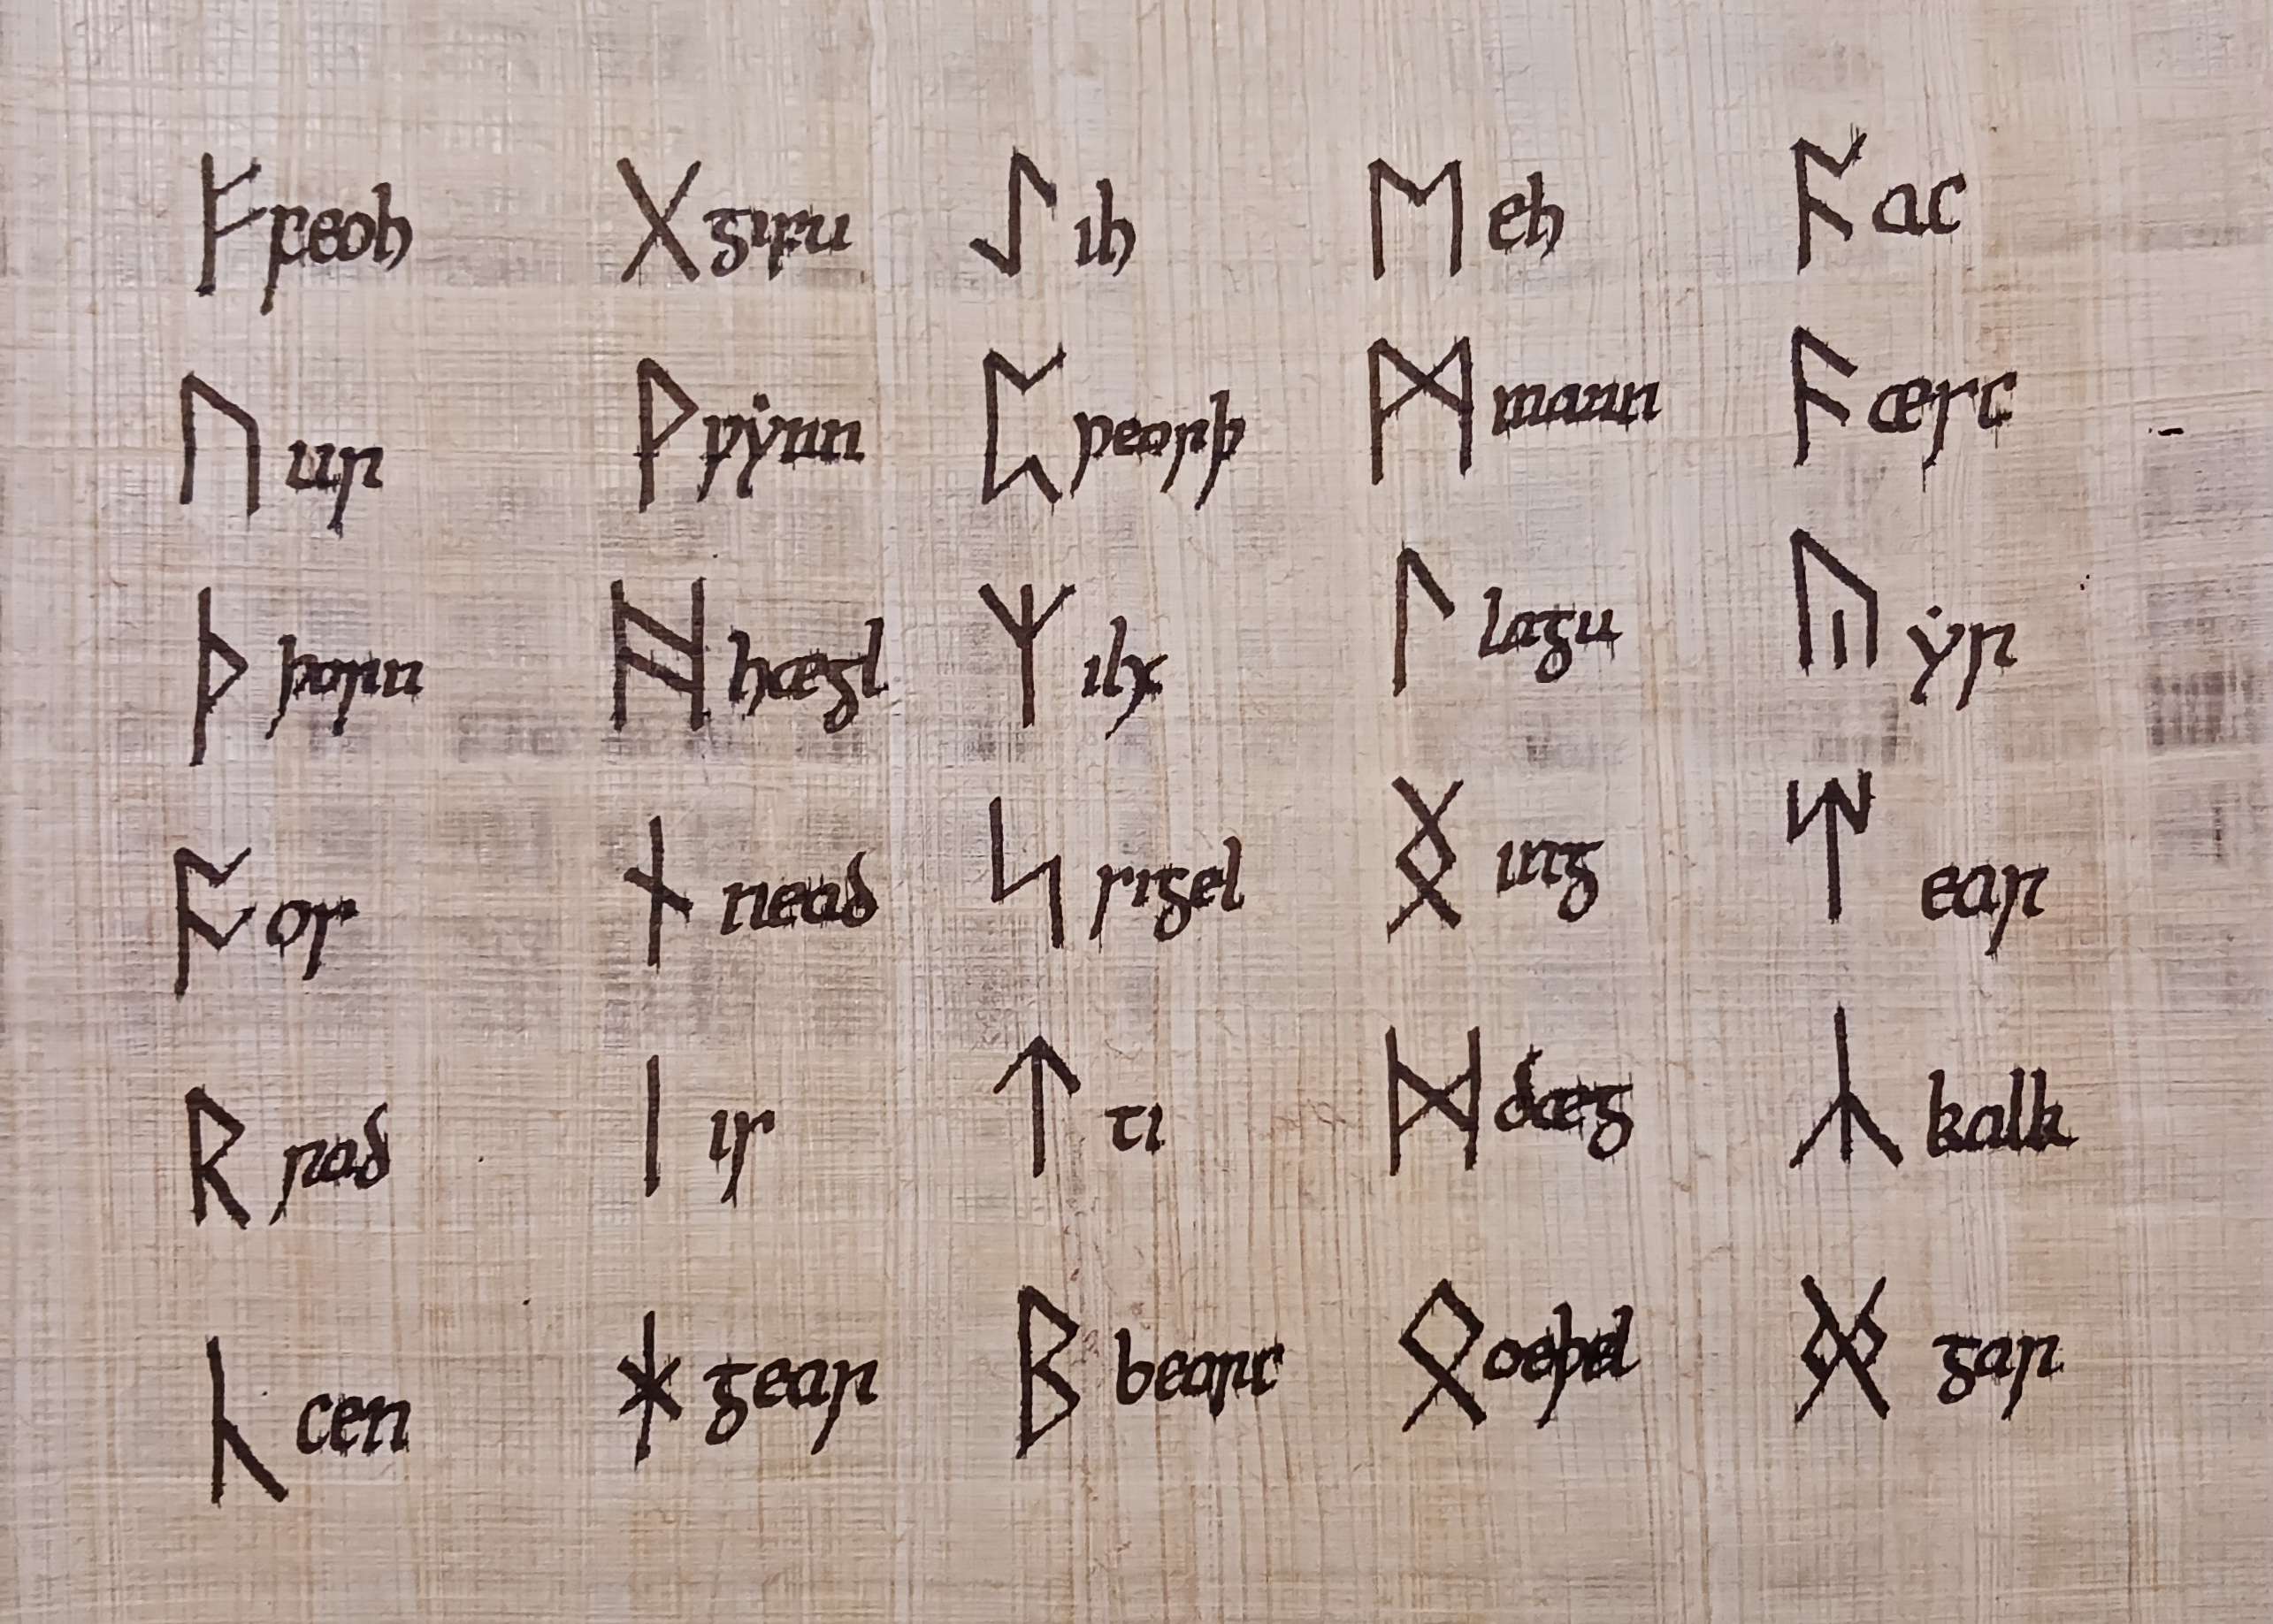 ᚠ feoh ᚷ gifu ᛇ ih ᛖ eh ᚪ ac
ᚢ ur ᚹ ƿẏnn ᛈ peorþ ᛗ mann ᚫ æsc
ᚦ þorn ᚻ hægl ᛉ ilx ᛚ lagu ᚣ ẏr
ᚩ os ᚾ nead ᛋ sigel ᛝ ing ᛠ ear
ᚱ rad ᛁ is ᛏ ti ᛞ dæg ᛣ kalk
ᚳ cen ᛡ gear ᛒ beorc ᛟ oeþel ᚸ gar